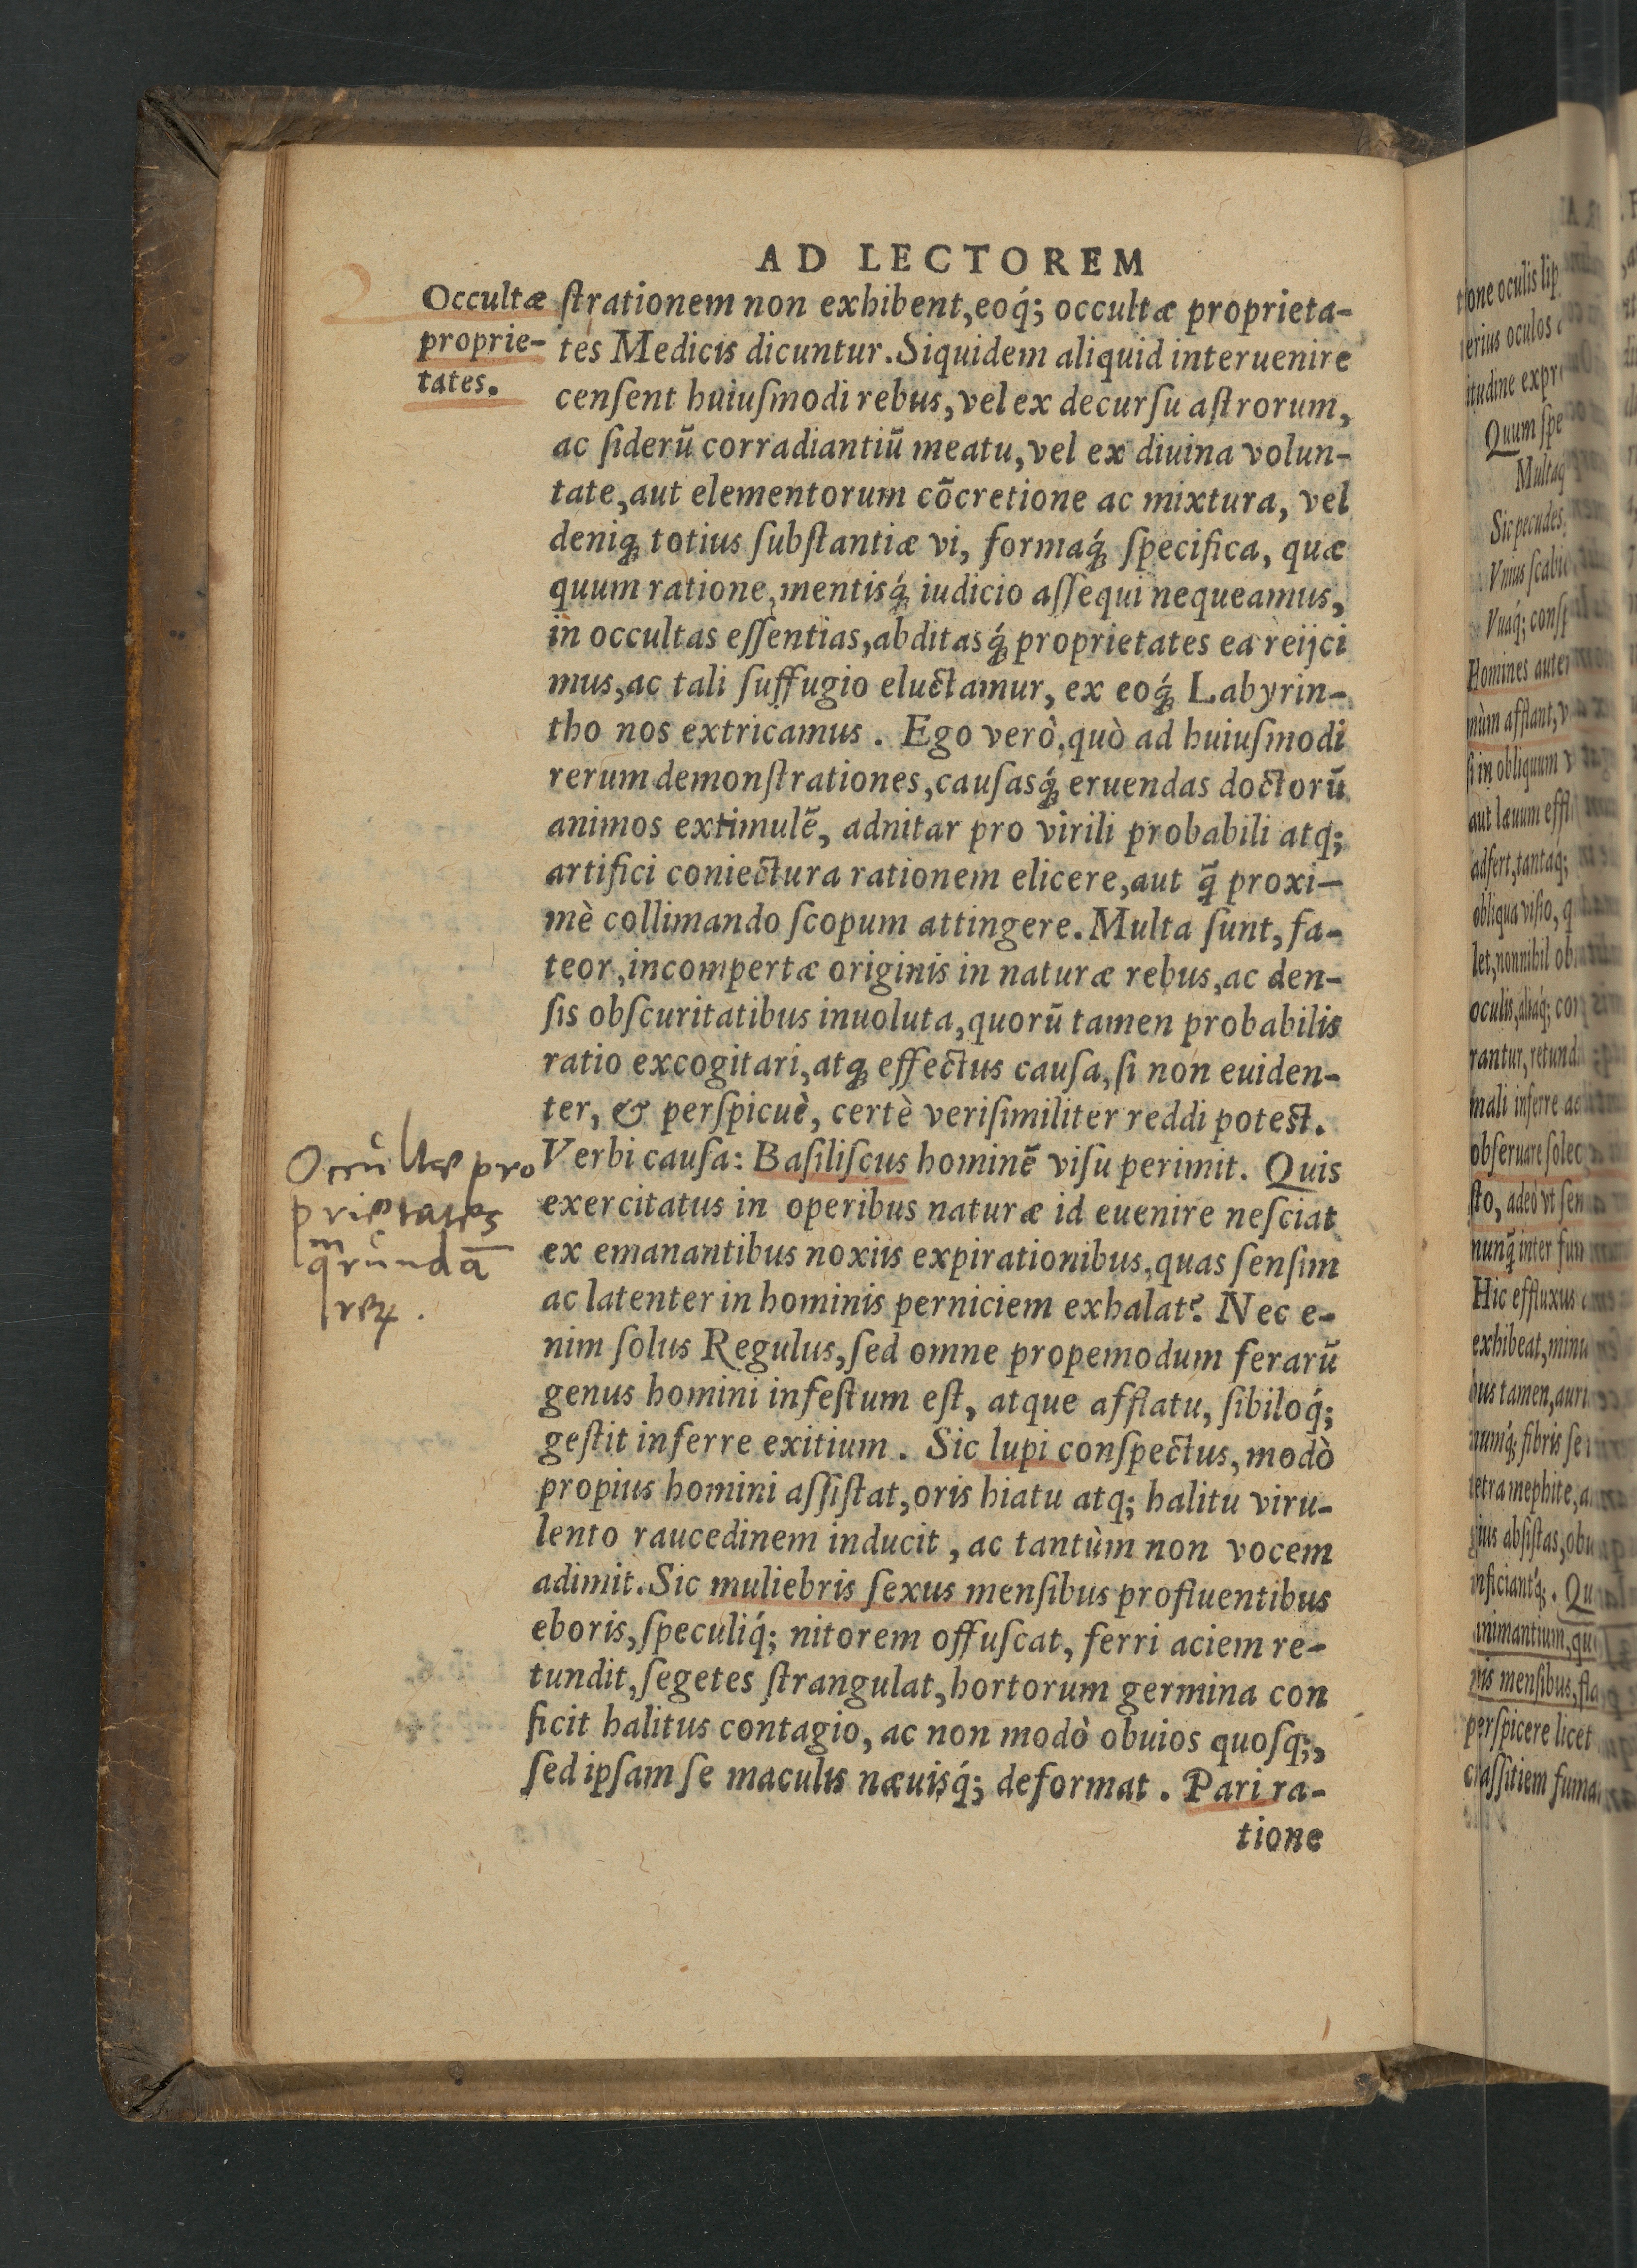 AD LECTOREM
Occultæ
proprie-
tates.
ſtrationem non exhibent, eoq́; occultæ proprieta-
tes Medicis dicuntur. Siquidem aliquid interuenire
cenſent huiuſmodi rebus, vel ex decurſu aſtrorum,
ac ſiderũ corradiantiũ meatu, vel ex diuina volun-
tate, aut elementorum cõcretione ac mixtura, vel
deniq; totius ſubſtantiæ vi, formaq́; ſpecifica, quæ
quum ratione, mentisq́; iudicio aſſequi nequeamus,
in occultas eſſentias, abditasq́; proprietates ea reijci
mus, ac tali ſuffugio eluctamur, ex eoq́; Labyrin-
tho nos extricamus. Ego verò, quò ad huiuſmodi
rerum demonſtrationes, cauſasq́; eruendas doctorũ
animos extimulẽ, adnitar pro virili probabili atq;
artifici coniectura rationem elicere, aut q̃ proxi-
mè collimando ſcopum attingere. Multa ſunt, fa-
teor, incompertæ originis in naturæ rebus, ac den-
ſis obſcuritatibus inuoluta, quorũ tamen probabilis
ratio excogitari, atq; effectus cauſa, ſi non euiden-
ter, & perſpicuè, certè veriſimiliter reddi poteſt.
Verbi cauſa: Baſiliſcus hominẽ viſu perimit. Quis
exercitatus in operibus naturæ id euenire neſciat
ex emanantibus noxiis expirationibus, quas ſenſim
ac latenter in hominis perniciem exhalat? Nec e-
nim ſolus Regulus, ſed omne propemodum ferarũ
genus homini infeſtum eſt, atque afflatu, ſibiloq́;
geſtit inferre exitium. Sic lupi conſpectus, modò
propius homini aſſiſtat, oris hiatu atq; halitu viru-
lento raucedinem inducit, ac tantùm non vocem
adimit. Sic muliebris ſexus menſibus profluentibus
eboris, ſpeculiq́; nitorem offuſcat, ferri aciem re-
tundit, ſegetes ſtrangulat, hortorum germina con
ficit halitus contagio, ac non modò obuios quoſq;,
ſed ipſam ſe maculis næuisq́; deformat. Pari ra-
tione
Occultæ pro
prietates
rerꝝ.
tione oculis lip
itudine expr
Quum ſpe
Multaq
Sic pecudes
Vnius ſcabi
Vuaq́; conſp
Homines aute
nùm afflant, v
ſi in obliquum v
aut læuum effl
adfert, tantaq́;
obliqua viſio, q
let, nonnihil ob
oculis, aliaq́; cor
rantur, retund
mali inferre ac
obſeruare ſolec
ſto, adeò vt ſen
nunq̃ inter fun
Hic effluxus
exhibeat, minu
bus tamen, auri
numq́; fibris ſe
tetra mephite, a
gius abſiſtas, obu
inficiantq́;. Qu
animantium, qu
niis menſibus, fla
perſpicere licet
craſſitiem fuma